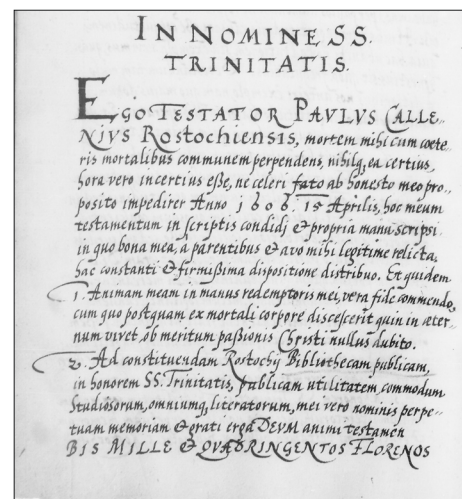 IN NOMINE SS.
TRINITATIS.
EGO TESTATOR PAVLVS CALLE-
NJVS ROSTOCHIENSIS, mortem mihi cum cæte-
ris mortalibus communem perpendens, nihilq, ea certius,
hora vero incertius eße, ne celeri fato ab honesto meo pro-
posito impedirer Anno 1606. 15 Aprilis, hoc meum
testamentum in scriptis condidj & propria manu scripsi
in quo bona mea, à parentibus & avo mihi legitime relicta,
hac constanti & firmißima dispositione distribuo. Et quidem
1. Animam meam in manus redemptoris mei, vera fide commendo,
cum quo postquam ex mortali corpore discesserit quin in æter-
num vivet, ob meritum paßionis Christi nullus dubito.
2. Ad constituendam Rostochij Bibliothecam publicam,
in honorem SS. Trinitatis, publicam utilitatem, commodum
Studiosorum, omniumq, literatorum, mei vero nominis perpe-
tuam memoriam & grati erga DEUM animi testamen
BIS MILLE & QVADRINGENTOS FLORENOS